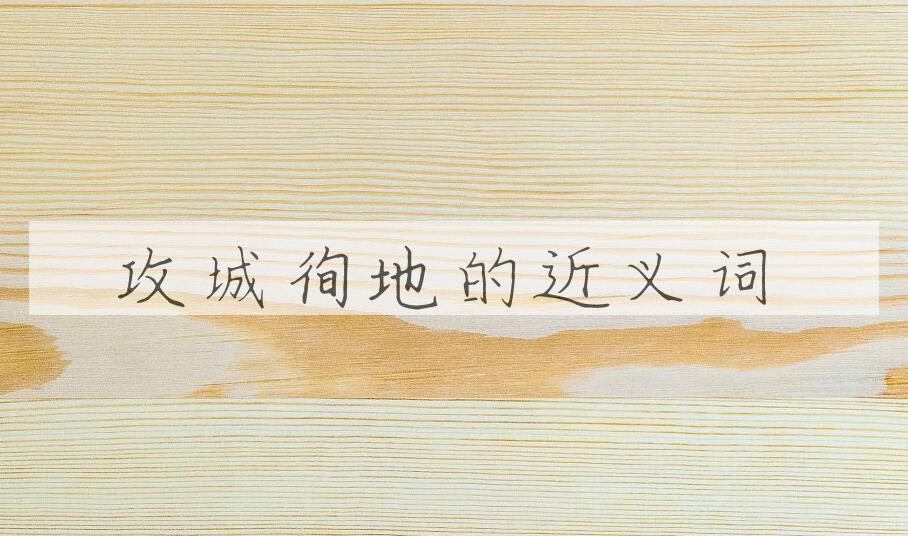 攻城徇地的近义词